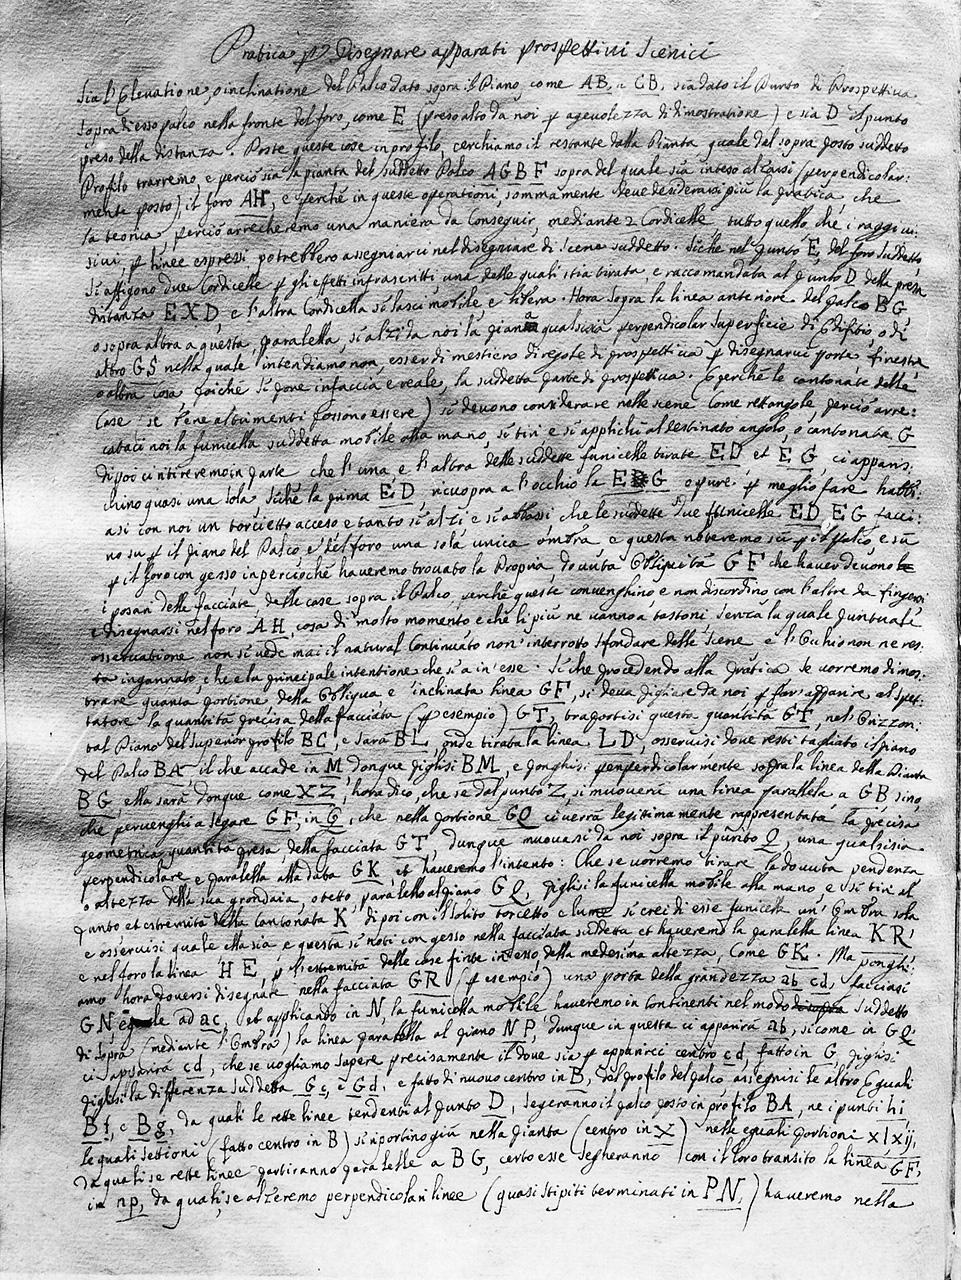 Pratica p Disegnare apparati prospettivi Scenici
Sia l'Elevatione, o inclinatione del Palco dato sopra il Piano, come AB, e CB, sia dato il Punto di Prospettiva
sopra di esso palco nella fronte del foro, come E (preso alto da noi p agevolezza di dimostratione) e sia D il punto
preso della distanza. Poste queste cose in profilo, cerchiamo il restante dalla Pianta quale dal sopra posto suddetto
Profilo trarremo, e perciò sia la pianta del suddetto Palco AGBF sopra del quale sia inteso alzarsi (perpendicolar:
mente posto) il foro AH, e perché in queste operationi, sommamente deve desiderarsi più la pratica che
la teoria, perciò arrecheremo una maniera da Conseguir, mediante 2 Cordicelle tutto quello che i raggi vi:
sivi, p linee espressi potrebbero assegnarci nel disegnare di Scene suddetto. Siche nel punto E, del foro suddetto,
si affigono due Cordicelle p gli effetti infrascritti, una delle quali stia tirata, e raccomandata al punto D della presa
distanza EXD, e l'altra Cordicella si lasci mobile e libera. Hora sopra la linea anteriore del palco BG,
o sopra altra a questa paralella, si alzi da noi la piana qualsisia perpendicolar superficie di Edifitio, o di
altro GS nella quale intendiamo non esser di mestiero di regole di prospettiva p disegnarvi porte, finestre
o altra cosa poiché si pone infaccia e reale, la suddetta parte di prospettiva. E perché le cantonate delle
Case (se bene altrimenti possono essere) si devono considerare nelle scene come rettangole, perciò arre:
cataci noi la funicella suddetta mobile alla mano, si tiri e si applichi al destinato angolo, o cantonata G
dipoi ci ritireremo in parte che l'una e l'altra delle suddette funicelle tirate ED et EG ci appari:
schino quasi una sola, siché la prima ED ricuopra a l'occhio la EG opure p meglio fare habb:
asi con noi un torcietto acceso e tanto si alzi e si abbassi che le suddette due funicelle ED EG facci:
no su p il piano del Palco e del foro una sola unica ombra e questa noteremo su p il palco e su
p il foro con gesso imperciocché haveremo trovato la Propria, dovuta Obliquità GF che haver devono le
i posari delle facciate, delle case sopra il Palco, perché queste convenghino e non discordino con l'altre da fingersi
e disegnarsi nel foro AH, cosa di molto momento e che li più ne vanno a tastoni senza la quale puntuale
osservatione non si vede mai il natural Continuato non interrotto sfondare delle scene e l'Ochio non ne res:
ta ingannato, che è la principale intentione che si a in esse. Si che procedendo alla pratica se vorremo dimos:
trare quanta portione della Obliqua e inclinata linea GF, si deva pigliare da noi p far apparire al spet:
tatore la quantità precisa della facciata (p esempio) GT, traportisi questa quantità GT, nel Orizzon:
tal Piano del superior profilo BC, e sarà BL, onde tirata la linea LD, osservisi dove resti tagliato il piano
del Palco BA, il che accade in M, donque piglisi BM, e ponghisi perpendicolarmente sopra la linea della Pianta
BG, ella sarà donque come XZ, hora dico, che se dal punto Z, si muoverà una linea paralella a GB sino,
che pervenghi a segare GF, in Q, che nella portione GQ ci verrà legitimamente rappresentata la precisa
geometrica quantità presa, della facciata GT. Dunque muovasi da noi sopra il punto Q, una qualsisia
perpendicolare e paralella alla data GK et haveremo l'intento: Che se vorremo tirare la dovuta pendenza
o altezza della sua grondaia, o tetto, paralello al piano GQ, piglisi la funicella mobile alla mano, e si tiri al
punto et estremità della Cantonata K dipoi con il solito torcetto o lume si crei di esse funicelle un'Ombra sola
e osservisi quale ella sia e questa si noti con gesso nella facciata suddetta et haveremo la paralella linea KR
e nel foro la linea HE, p l'estremità delle case finte in esso della medesima altezza, Come GK. Ma ponghi:
amo hora doversi disegnare nella facciata GR (p esempio) una porta della grandezza ab cd, facciasi
GN eguale ad ac, et applicando in N, la funicella mobile haveremo in continenti nel modo suddetto
di sopra (mediante l'Ombra) la linea paralella al piano NP, dunque in questa ci apparirà ab, si come in GQ
ci apparirà cd, che se vogliamo sapere precisamente il dove sia p apparirci centro cd, fatto in G, piglisi
piglisi la differenza suddetta Gc, e Gd, e fatto di nuovo centro in B, dal profilo del palco assegnisi le altre Eguali
Bf, e Bg, da quali le rette linee tendenti al punto D, segeranno il palco posto in profilo BA, ne i punti hi,
le quali settioni (fatto centro in B) si riportino giù nella pianta (centro in X) nelle eguali portioni xl xij,
da quali se rette linee partiranno paralelle a BG, certo esse segheranno con il loro transito la linea GF,
in np, da quali, se alzeremo perpendicolari linee (quasi stipiti terminati in PN,) haveremo nella